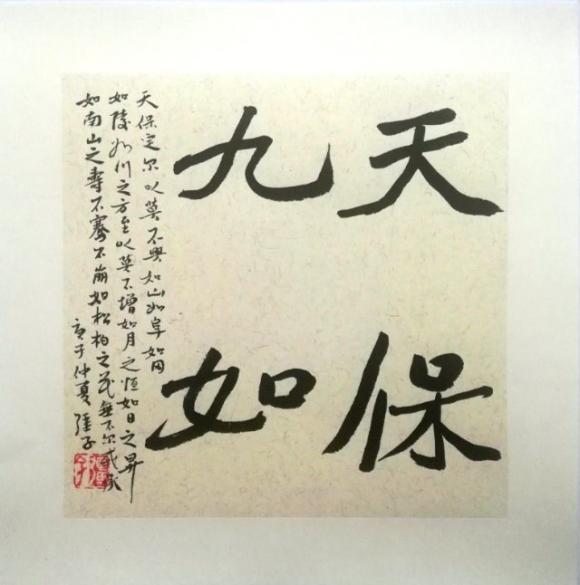 天保
九如
天保定尔以莫不興如山如阜如冈
如陵如川之方至以莫不增如月之恒如日之昇
如南山之壽不騫不崩如松柏之茂無不尔或承
庚子仲夏